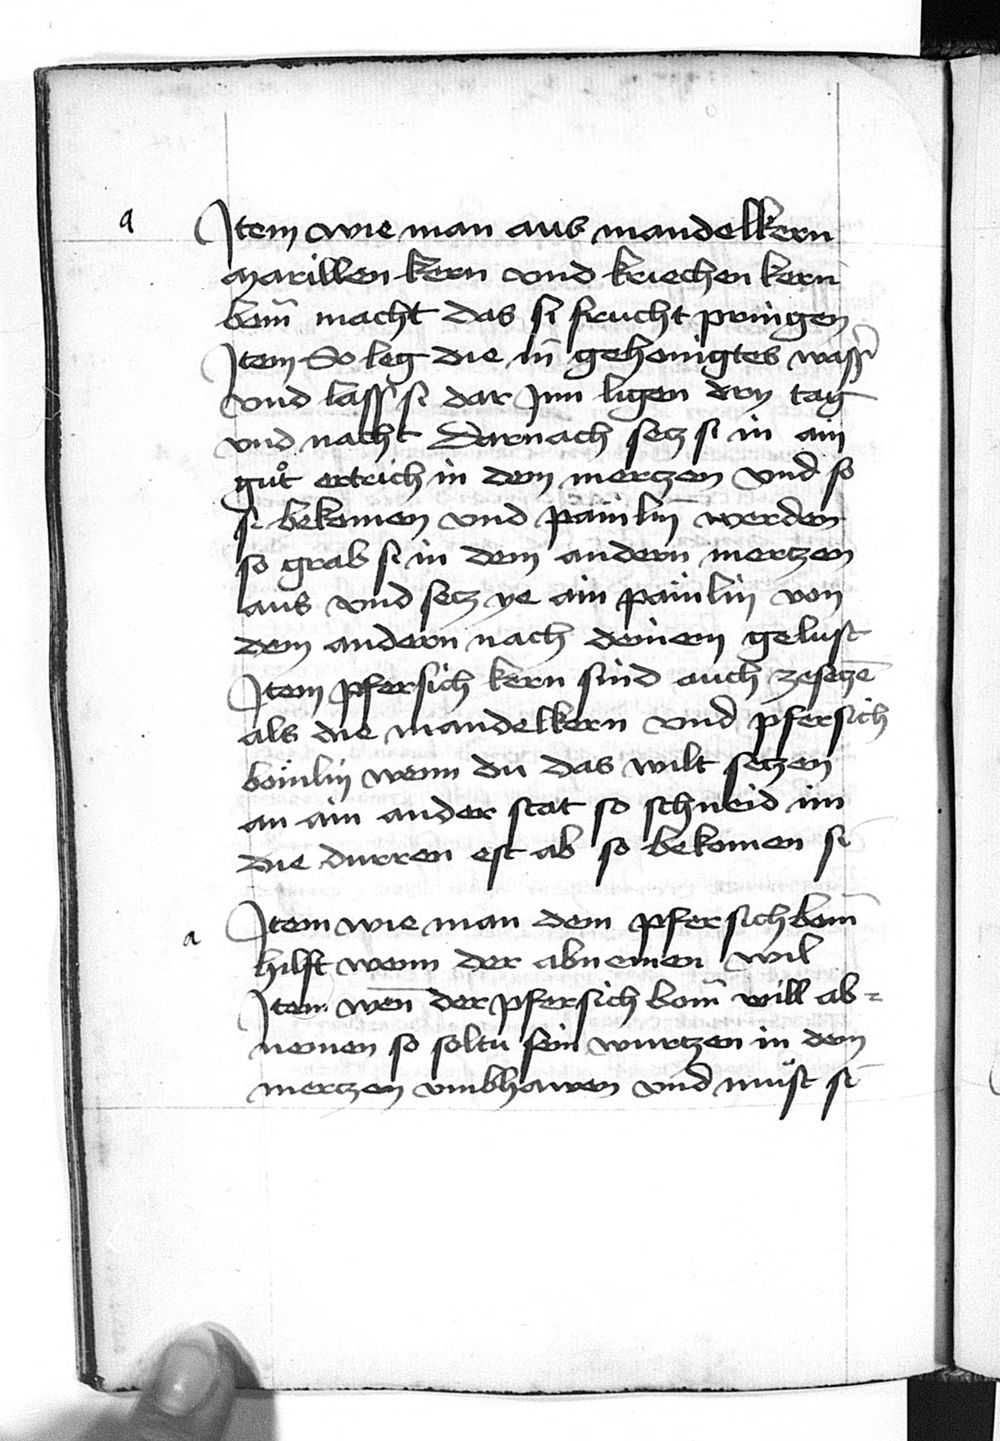 a Item wie man aus mandelkern
Marillen kern vnd kriechen kern
bom̄ macht das si frucht pringen
Item So leg die in gehonigtes wasser
vnd lass si dar Inn ligen dry tag
vnd nacht Darnach secz si in ain
guͦt ertrich in dem mertzen vnd so
si bekomen vnd païnlin werden
so grab si in dem andern mertzen
aus vnd setz ye ain païnlin von
dem andern nach deinem gelust
Item pfersich kern sind auch zesetzē
als die mandelkern vnd pfersich
boͤmlin wenn du das wilt setzen
an ain ander stat so schneid im
die durren est ab so bekomen si
a Item wie man dem pfersichbom̄
hilft wenn der abnemen wil
Item wen̄ der pfersich bom̄ will ab=
nemen so soltu sein wurtzen in dem
mertzen vmbhawen vnd muͤst si